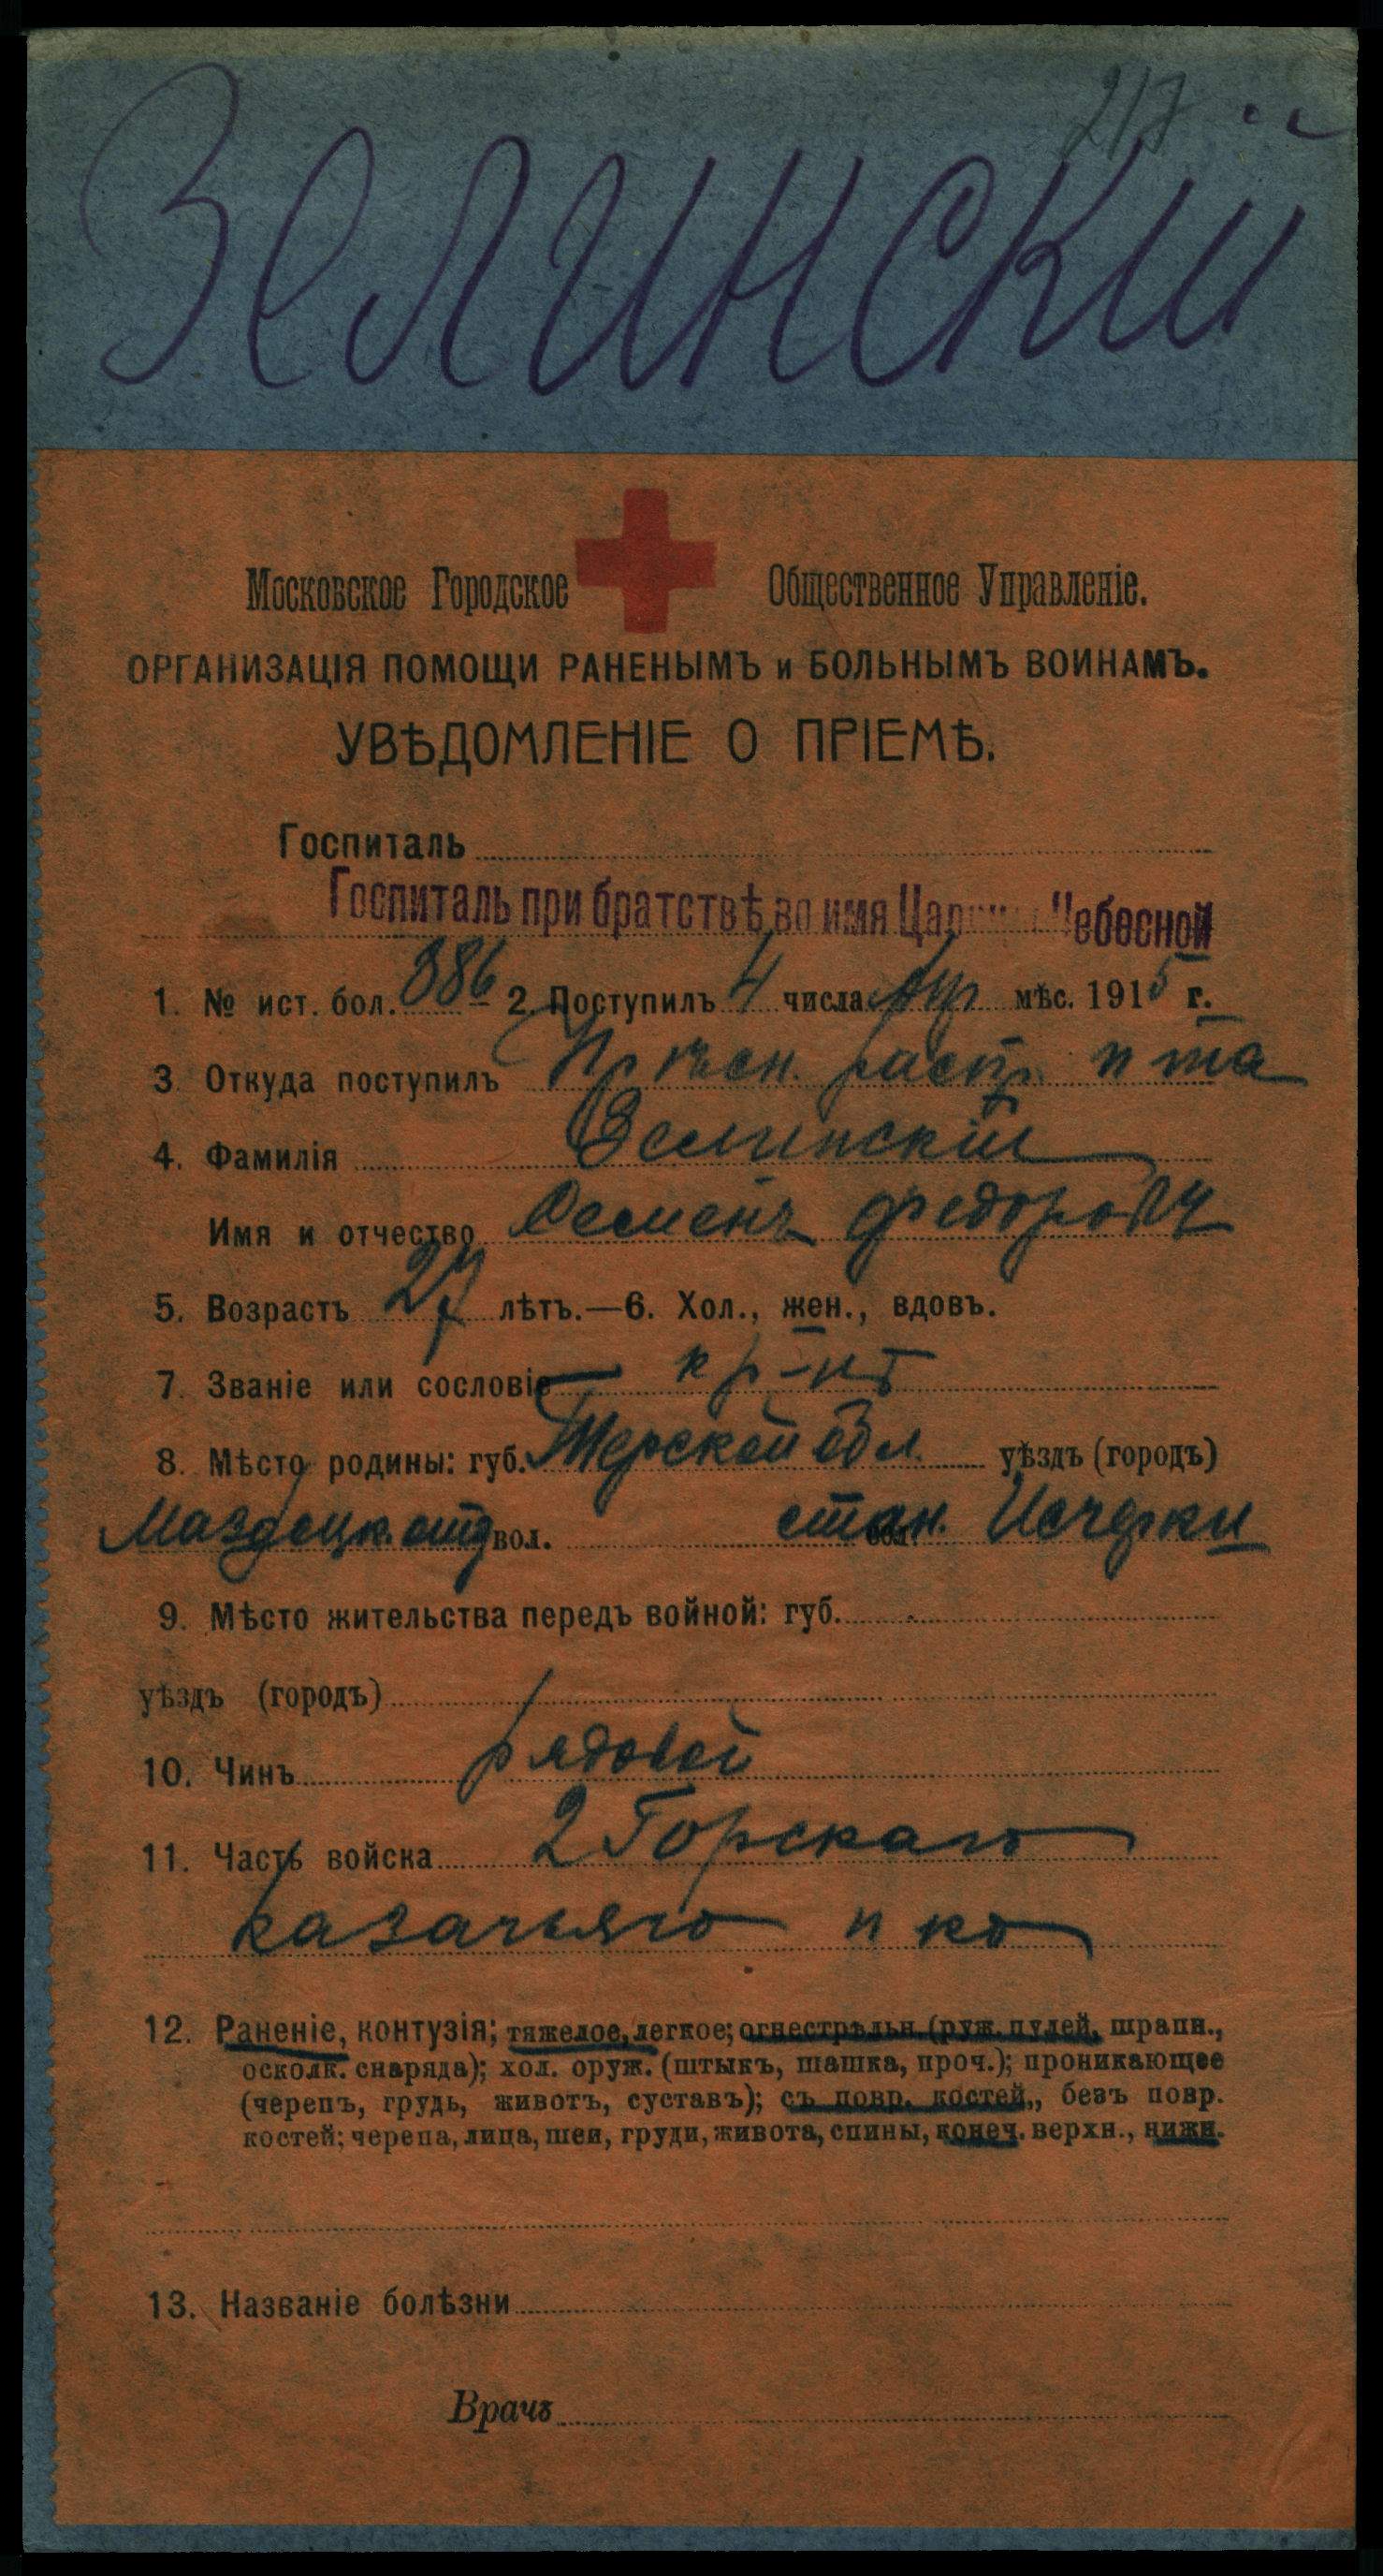 217
Зелинскій
Московское Городское Общественное Управленіе.
ОРГАНИЗАЦІЯ ПОМОЩИ РАНЕНЫМЪ и БОЛЬНЫМЪ ВОИНАМЪ.
УВѢДОМЛЕНІЕ О ПРІЕМѢ.
Госпиталь
Госпиталь при братствѣ во имя Царицы Небесной
1. № ист. бол. 386 — 2. Поступилъ 4 числа Апр мѣс. 1915 г.
3. Откуда поступилъ расп. п та
4. Фамилія Зелинскій
Имя и отчество Семенъ Федоровч
5. Возрастъ 27 лѣтъ.—6. Хол., жен., вдовъ.
7. Званіе или сословіе кр-нъ
8. Мѣсто родины: губ. Терской Обл уѣздъ (городъ)
Маздоцк. отд вол. стан. Ищерки
9. Мѣсто жительства передъ войной: губ.
уѣздъ (городъ)
10. Чинъ рядовой
11. Часть войска 2 Горскаго
казачьяго п ка
12. Раненіе, контузія; тяжелое, легкое; огнестрѣльн. (руж. пулей, шрапн.,
осколк. снаряда); хол. оруж. (штыкъ, шашка, проч.); проникающее
(черепъ, грудь, животъ, суставъ); съ повр. костей,, безъ повр.
костей; черепа, лица, шеи, груди, живота, спины, конеч. верхн., нижн.
13. Названіе болѣзни
Врачъ